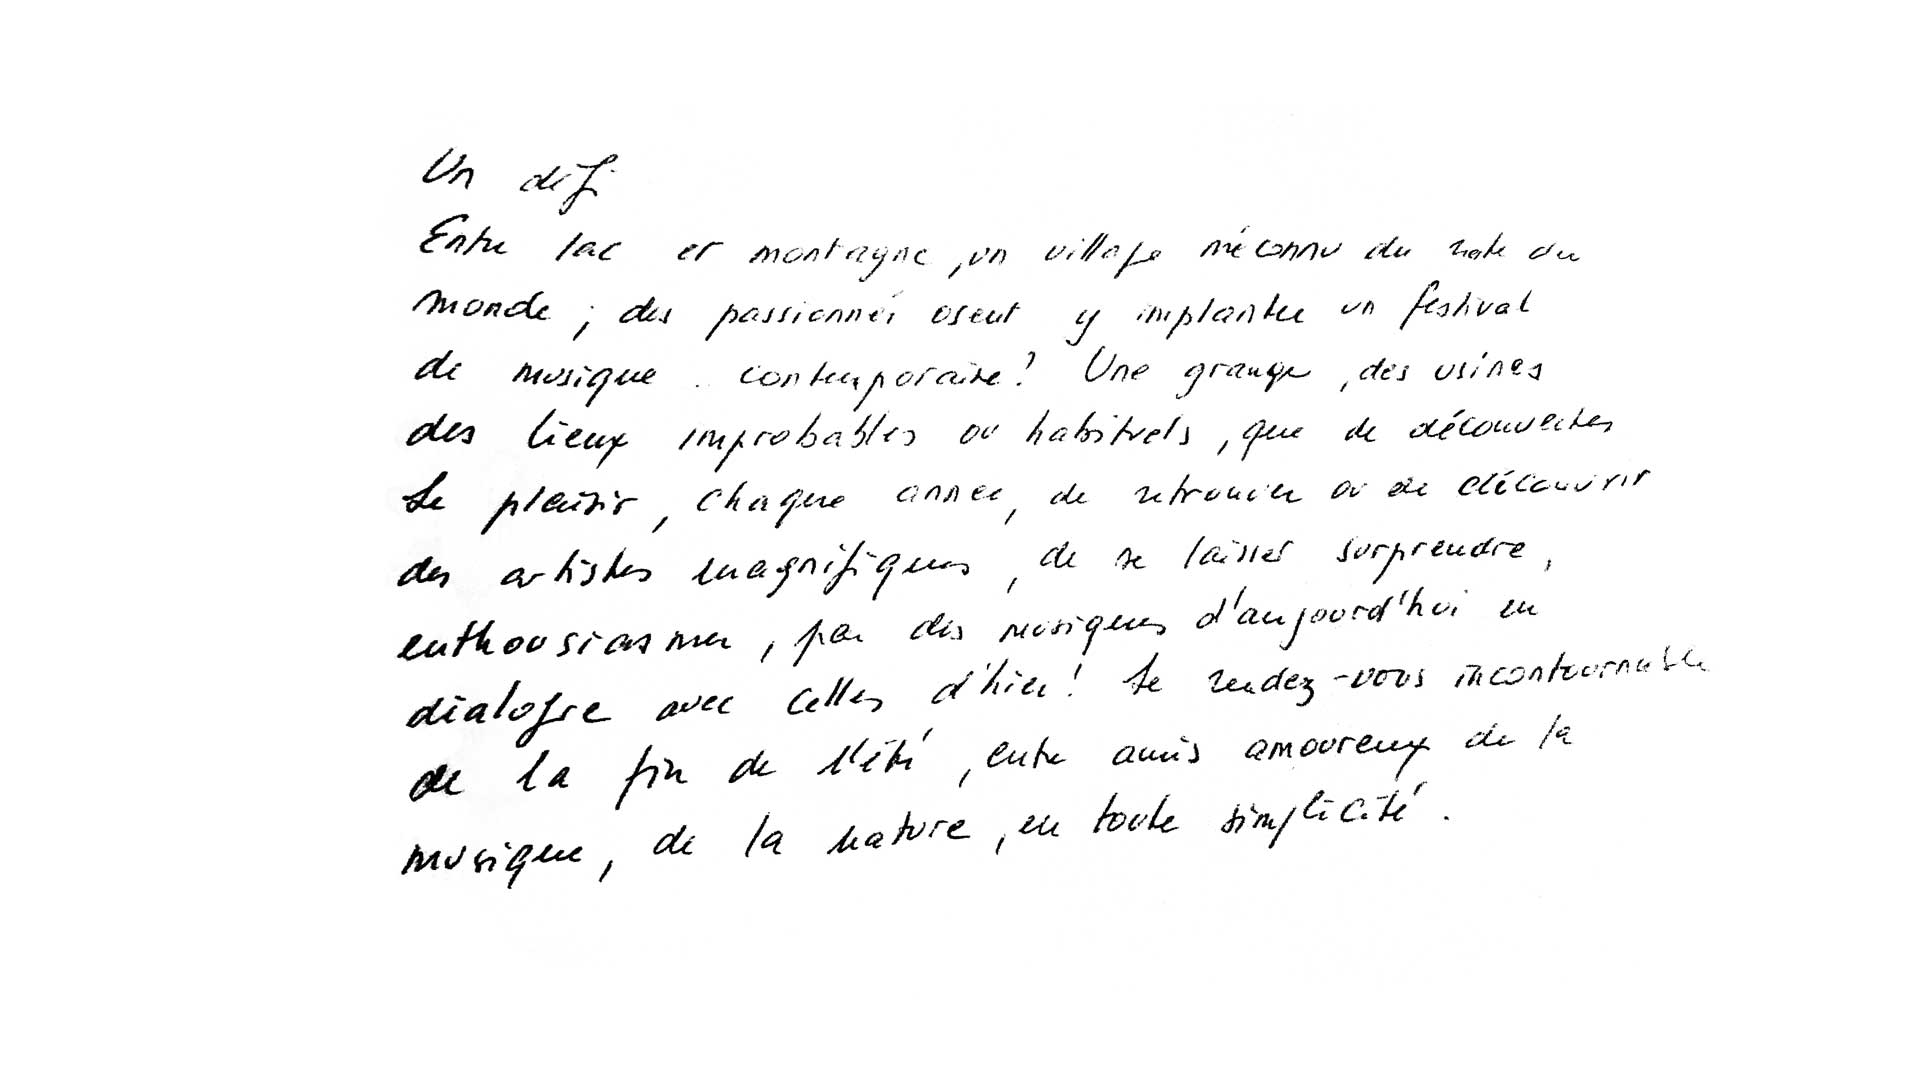 Un défi
Entre lac et montagne, un village méconnu du reste du
monde ; des passionnés osent y implanter un festival
de musique contemporaine ! Une grange, des usines
des lieux improbables ou habituels, que de découvertes
Le plaisir, chaque année, de retrouver ou de découvrir
des artistes magnifiques, de se laisser surprendre,
enthousiasmer, par des musiques d'aujourd'hui en
dialogue avec celles d'hier ! Le rendez-vous incontournable
de la fin de l'été, entre amis amoureux de la
musique, de la nature, en toute simplicité.